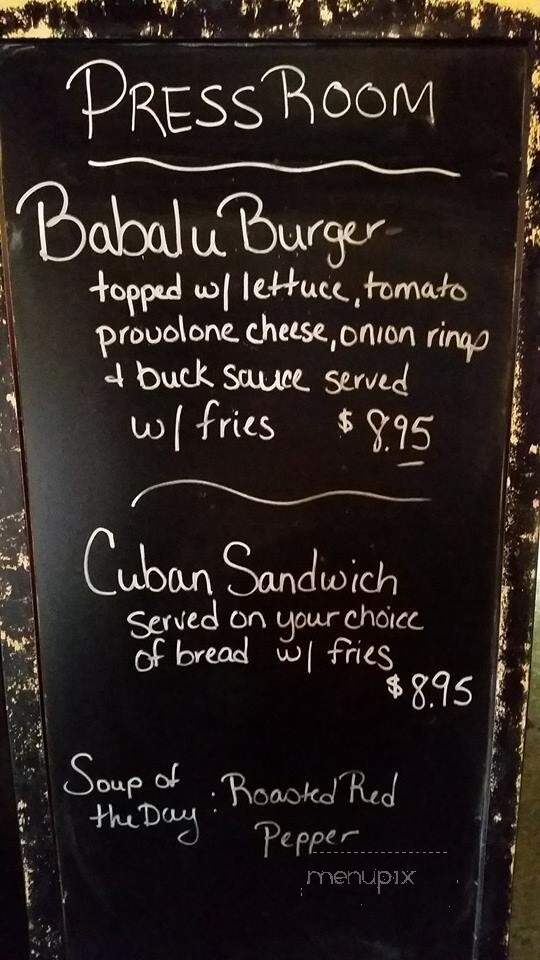 PRESS ROOM
Babalu Burger-
topped w/ lettuce, tomato
provolone cheese, onion rings
& buck sauce served
w/ fries $8.95
Cuban Sandwich
served on your choice
of bread w/ fries
$8.95
Soup of
the Day : Roasted Red
Pepper
menupix